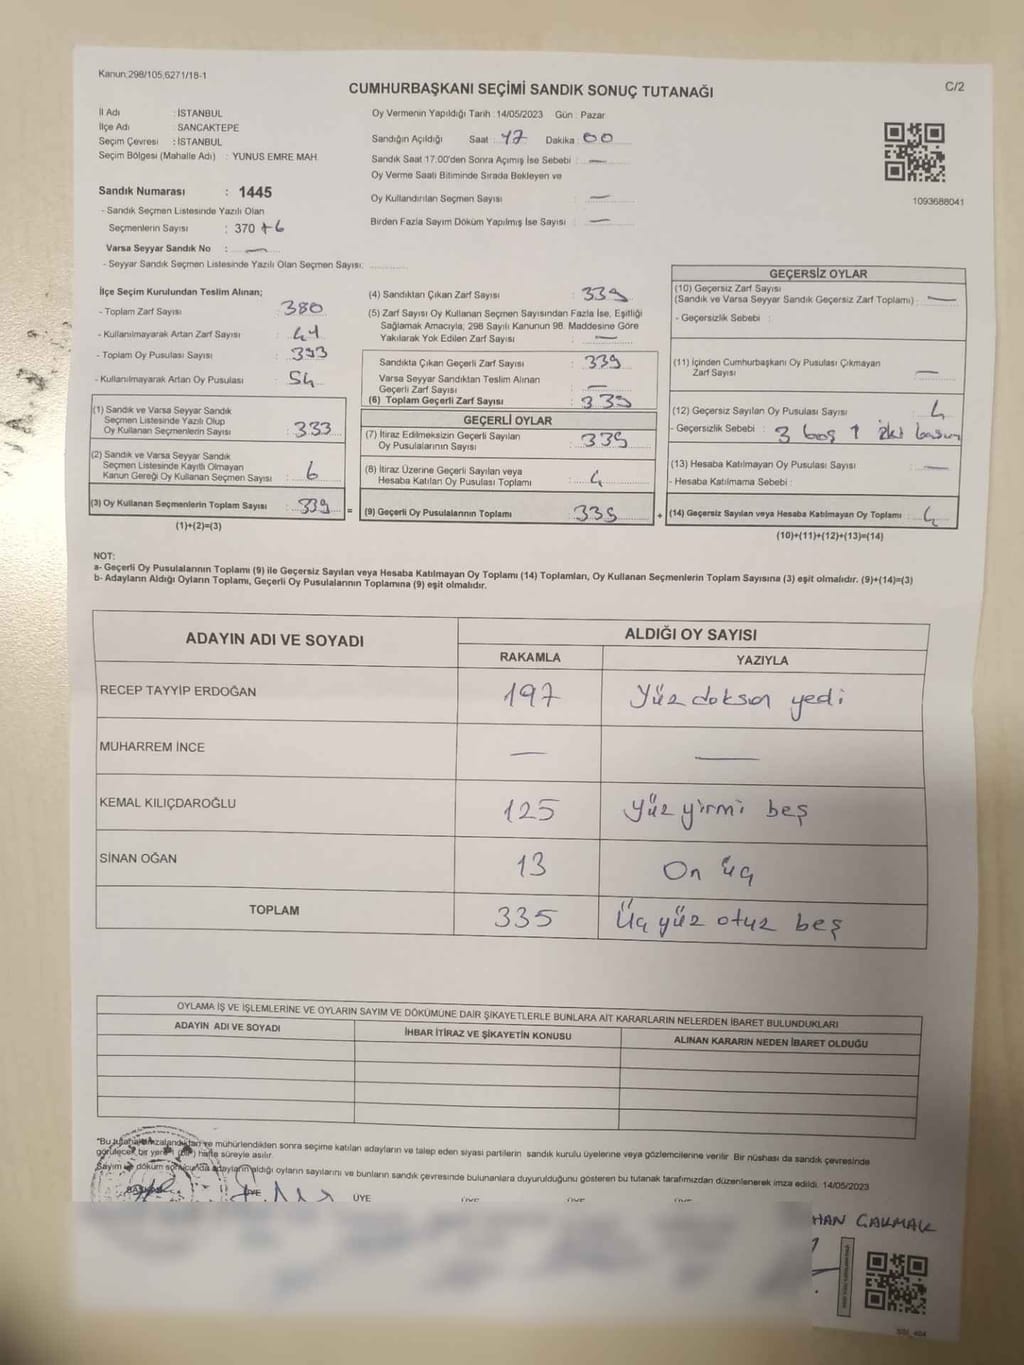 Kanun;298/105,6271/18-1
C/2
CUMHURBAŞKANI SEÇİMİ SANDIK SONUÇ TUTANAĞI
İl Adı : İSTANBUL
İlçe Adı : SANCAKTEPE
Seçim Çevresi : İSTANBUL
Seçim Bölgesi (Mahalle Adı) : YUNUS EMRE MAH.
Sandık Numarası : 1445
- Sandık Seçmen Listesinde Yazılı Olan
Seçmenlerin Sayısı : 370 +6
Varsa Seyyar Sandık No : —
- Seyyar Sandık Seçmen Listesinde Yazılı Olan Seçmen Sayısı:
Oy Vermenin Yapıldığı Tarih : 14/05/2023 Gün : Pazar
Sandığın Açıldığı Saat : 17 Dakika : 00
Sandık Saat 17:00'den Sonra Açımış İse Sebebi : —
Oy Verme Saati Bitiminde Sırada Bekleyen ve
Oy Kullandırılan Seçmen Sayısı : —
Birden Fazla Sayım Döküm Yapılmış İse Sayısı : —
1093688041
İlçe Seçim Kurulundan Teslim Alınan;
- Toplam Zarf Sayısı : 380
- Kullanılmayarak Artan Zarf Sayısı : 41
- Toplam Oy Pusulası Sayısı : 393
- Kullanılmayarak Artan Oy Pusulası : 54
(1) Sandık ve Varsa Seyyar Sandık
Seçmen Listesinde Yazılı Olup
Oy Kullanan Seçmenlerin Sayısı : 333
(2) Sandık ve Varsa Seyyar Sandık
Seçmen Listesinde Kayıtlı Olmayan
Kanun Gereği Oy Kullanan Seçmen Sayısı : 6
(3) Oy Kullanan Seçmenlerin Toplam Sayısı : 339 =
(1)+(2)=(3)
(4) Sandıktan Çıkan Zarf Sayısı : 339
(5) Zarf Sayısı Oy Kullanan Seçmen Sayısından Fazla İse, Eşitliği
Sağlamak Amacıyla, 298 Sayılı Kanunun 98. Maddesine Göre
Yakılarak Yok Edilen Zarf Sayısı : —
Sandıkta Çıkan Geçerli Zarf Sayısı : 339
Varsa Seyyar Sandıktan Teslim Alınan
Geçerli Zarf Sayısı : —
(6) Toplam Geçerli Zarf Sayısı : 339
GEÇERLİ OYLAR
(7) İtiraz Edilmeksizin Geçerli Sayılan
Oy Pusulalarının Sayısı : 335
(8) İtiraz Üzerine Geçerli Sayılan veya
Hesaba Katılan Oy Pusulası Toplamı : 4
(9) Geçerli Oy Pusulalarının Toplamı : 335 +
GEÇERSİZ OYLAR
(10) Geçersiz Zarf Sayısı
(Sandık ve Varsa Seyyar Sandık Geçersiz Zarf Toplamı) : —
- Geçersizlik Sebebi :
(11) İçinden Cumhurbaşkanı Oy Pusulası Çıkmayan
Zarf Sayısı : —
(12) Geçersiz Sayılan Oy Pusulası Sayısı : 4
- Geçersizlik Sebebi : 3 boş 1 iki basım
(13) Hesaba Katılmayan Oy Pusulası Sayısı : —
- Hesaba Katılmama Sebebi :
(14) Geçersiz Sayılan veya Hesaba Katılmayan Oy Toplamı : 4
(10)+(11)+(12)+(13)=(14)
NOT:
a- Geçerli Oy Pusulalarının Toplamı (9) ile Geçersiz Sayılan veya Hesaba Katılmayan Oy Toplamı (14) Toplamları, Oy Kullanan Seçmenlerin Toplam Sayısına (3) eşit olmalıdır. (9)+(14)=(3)
b- Adayların Aldığı Oyların Toplamı, Geçerli Oy Pusulalarının Toplamına (9) eşit olmalıdır.
ADAYIN ADI VE SOYADI
ALDIĞI OY SAYISI
RAKAMLA YAZIYLA
RECEP TAYYİP ERDOĞAN 197 Yüz doksan yedi
MUHARREM İNCE — —
KEMAL KILIÇDAROĞLU 125 Yüz yirmi beş
SİNAN OĞAN 13 On üç
TOPLAM 335 Üç yüz otuz beş
OYLAMA İŞ VE İŞLEMLERİNE VE OYLARIN SAYIM VE DÖKÜMÜNE DAİR ŞİKAYETLERLE BUNLARA AİT KARARLARIN NELERDEN İBARET BULUNDUKLARI
ADAYIN ADI VE SOYADI İHBAR İTİRAZ VE ŞİKAYETİN KONUSU ALINAN KARARIN NEDEN İBARET OLDUĞU
"Bu tutanak imzalandıktan ve mühürlendikten sonra seçime katılan adayların ve talep eden siyasi partilerin sandık kurulu üyelerine veya gözlemcilerine verilir. Bir nüshası da sandık çevresinde
görülecek bir yere 1 (bir) hafta süreyle asılır.
Sayım ve döküm sonucunda adayların aldığı oyların sayılarını ve bunların sandık çevresinde bulunanlara duyurulduğunu gösteren bu tutanak tarafımızdan düzenlenerek imza edildi. 14/05/2023
BAŞKAN ÜYE ÜYE ÜYE ÜYE ÜYE
HAN ÇAKMAK